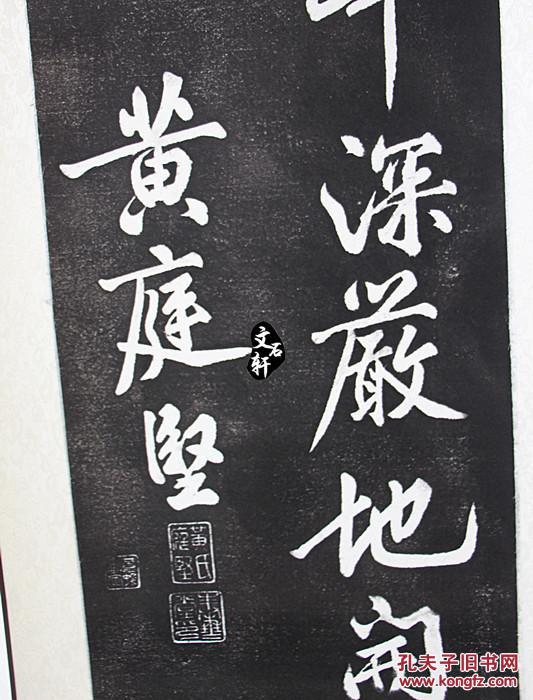 深嚴地閑
黄庭堅
黄氏庭堅
文石轩
孔夫子旧书网
www.kongfz.com